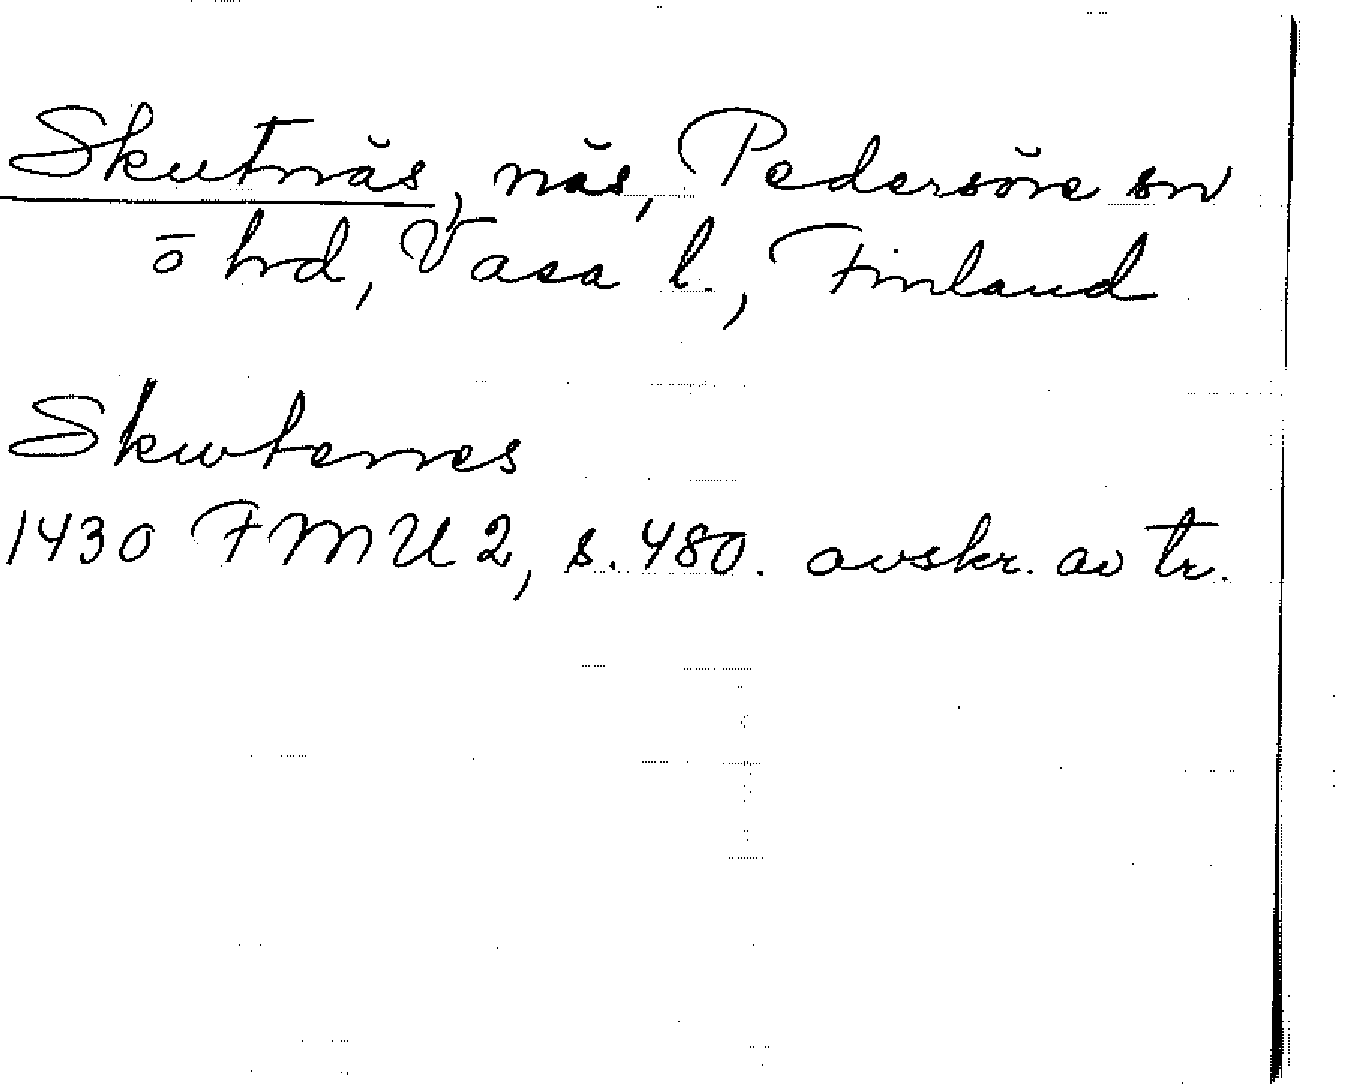 Skutnäs, näs, Pedersöre sn
ö hrd, Vasa l., Finland
Skwtennes
1430 FMU 2, s. 480. avskr. av tr.